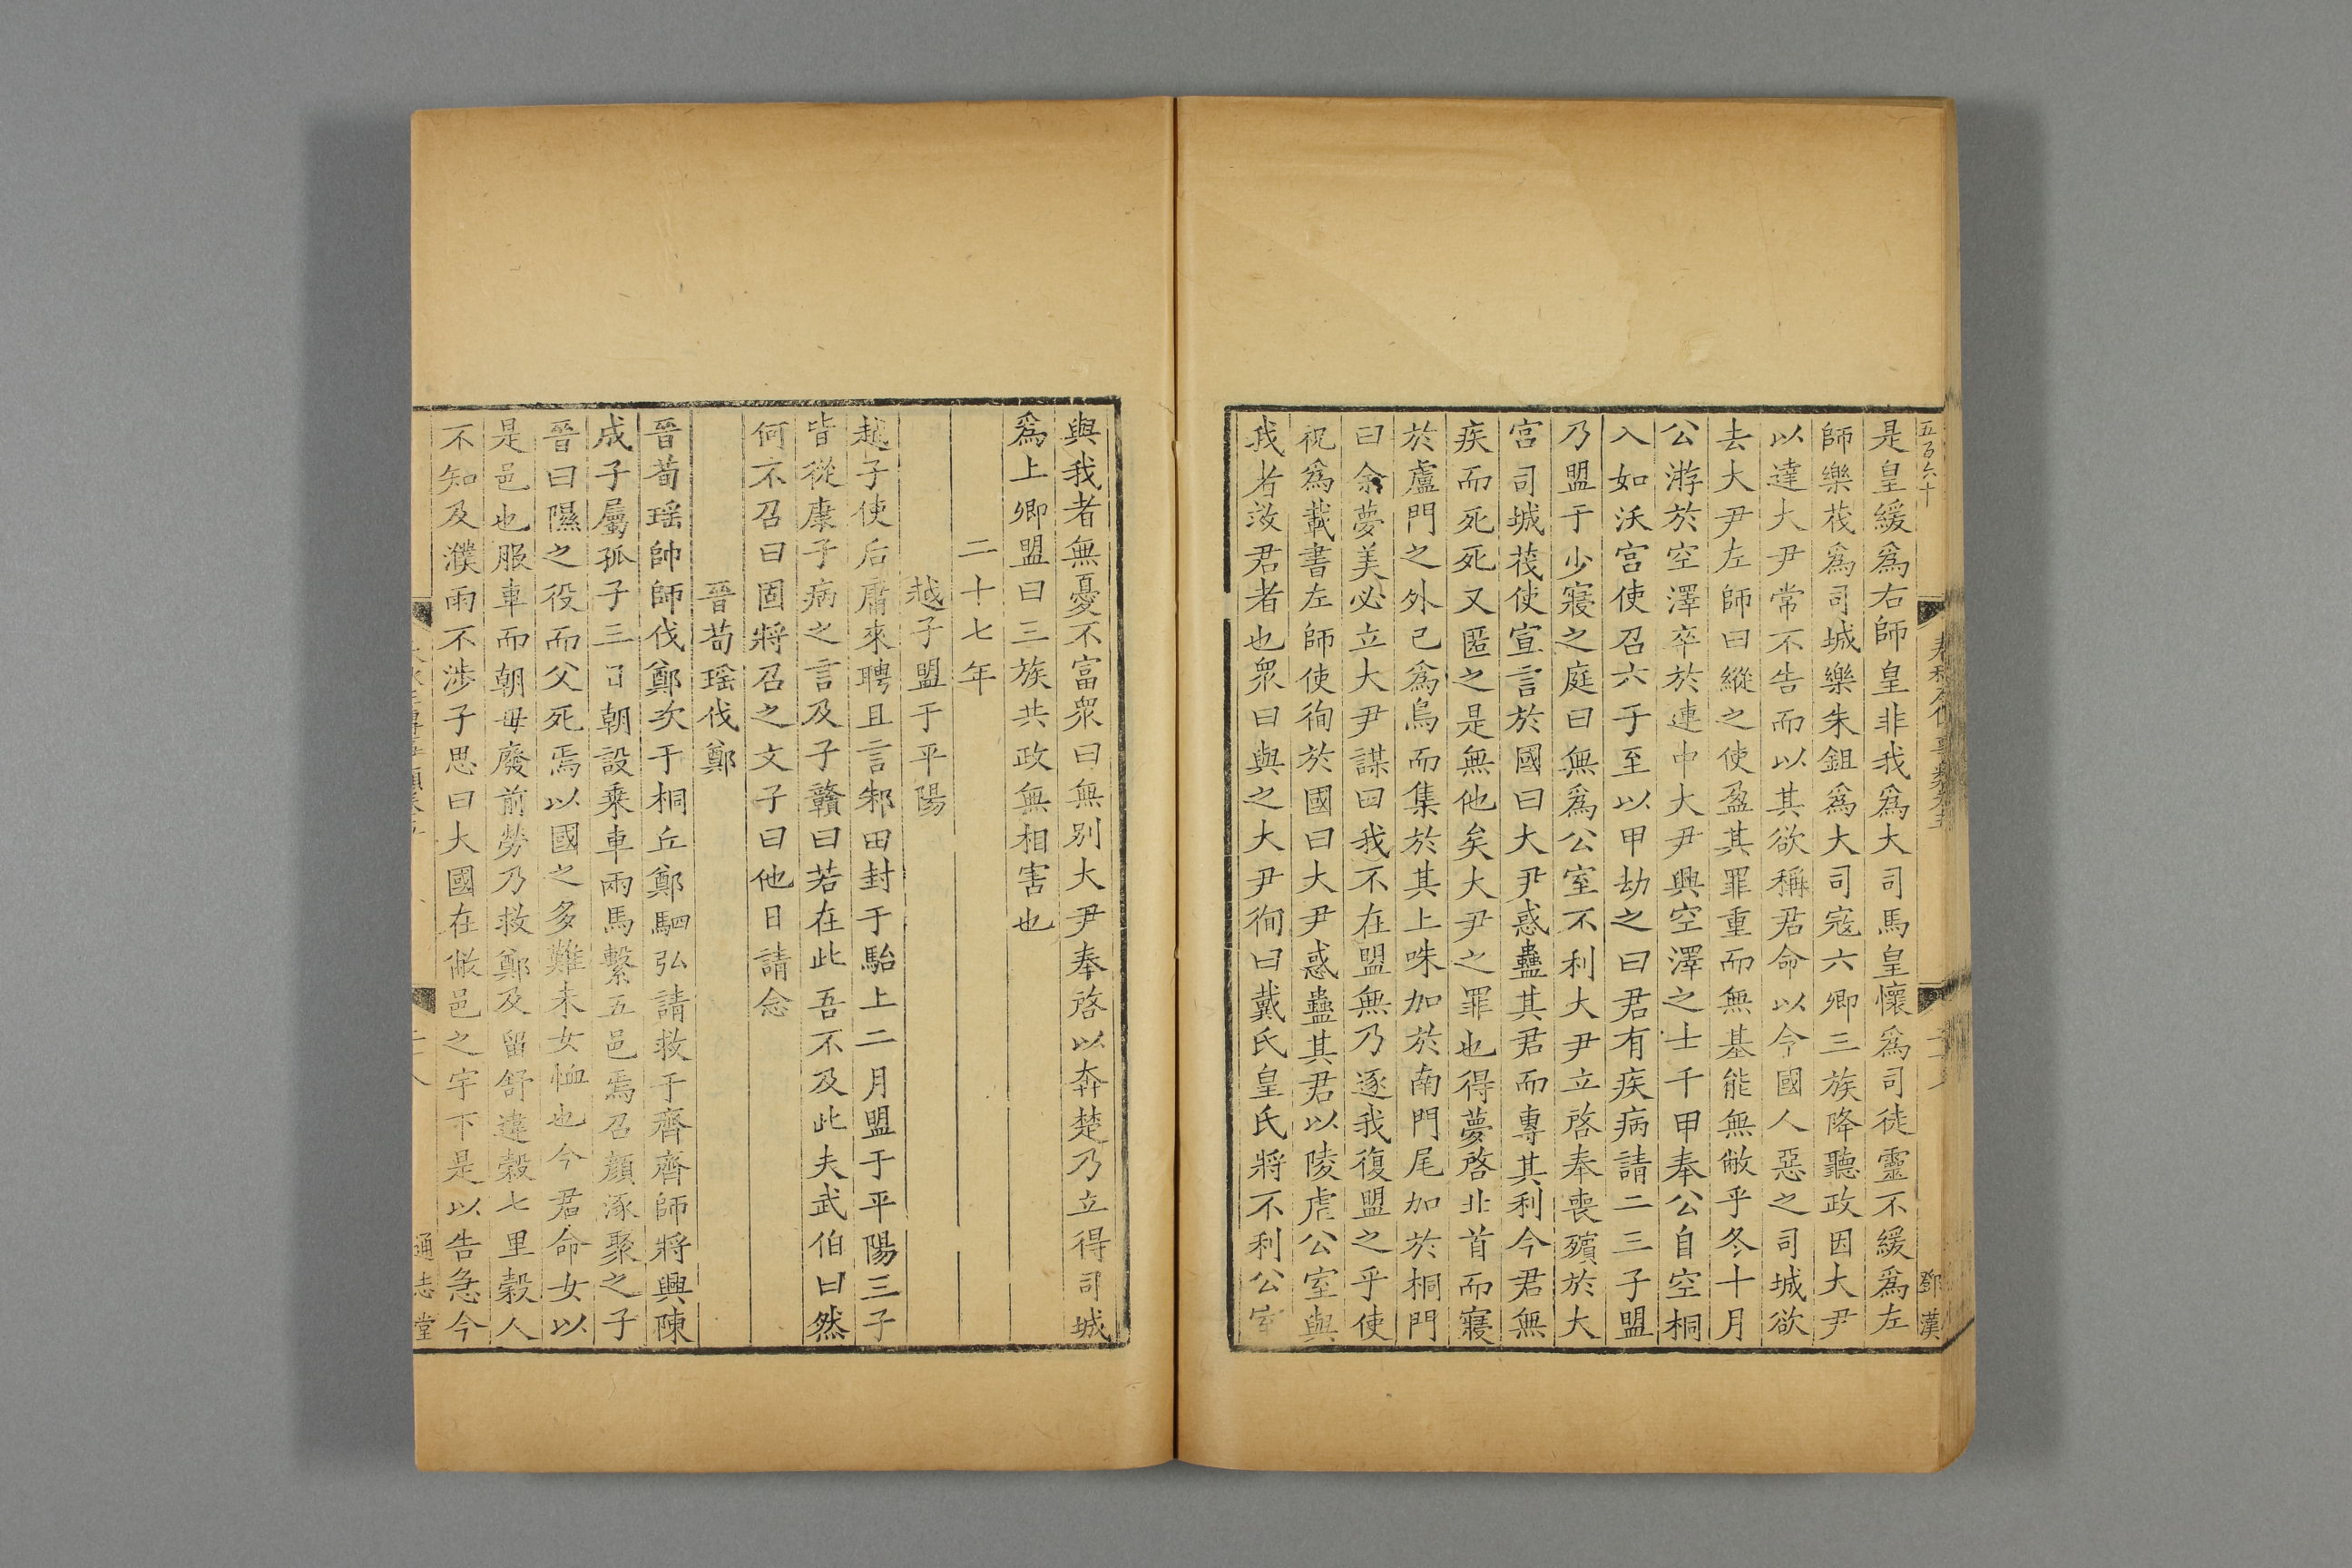 五百六十
鄧漢
是皇緩爲右師皇非我爲大司馬皇懷爲司徒靈不緩爲左
師樂茷爲司城樂朱鉏爲大司寇六卿三族降聽政因大尹
以達大尹常不告而以其欲稱君命以令國人惡之司城欲
去大尹左師曰縱之使盈其罪重而無基能無敝乎冬十月
公游於空澤卒於連中大尹興空澤之士千甲奉公自空桐
入如沃宮使召六子至以甲劫之曰君有疾病請二三子盟
乃盟于少寢之庭曰無爲公室不利大尹立啓奉喪殯於大
宮司城茷使宣言於國曰大尹惑蠱其君而專其利今君無
疾而死死又匿之是無他矣大尹之罪也得夢啓北首而寢
於盧門之外己爲烏而集於其上咮加於南門尾加於桐門
曰余夢美必立大尹謀曰我不在盟無乃逐我復盟之乎使
祝爲載書左師使徇於國曰大尹惑蠱其君以陵虐公室與
我者救君者也衆曰與之大尹徇曰戴氏皇氏將不利公室
與我者無憂不富衆曰無别大尹奉啓以奔楚乃立得司城
爲上卿盟曰三族共政無相害也
二十七年
越子盟于平陽
越子使后庸來聘且言邾田封于駘上二月盟于平陽三子
皆從康子病之言及子贛曰若在此吾不及此夫武伯曰然
何不召曰固將召之文子曰他日請念
晉荀瑶伐鄭
晉荀瑶帥師伐鄭次于桐丘鄭駟弘請救于齊齊師將興陳
成子屬孤子三日朝設乘車兩馬繫五邑焉召顏涿聚之子
晉曰隰之役而父死焉以國之多難未女恤也今君命女以
是邑也服車而朝毋廢前勞乃救鄭及留舒違穀七里穀人
不知及濮雨不涉子思曰大國在敝邑之宇下是以告急今
通志堂